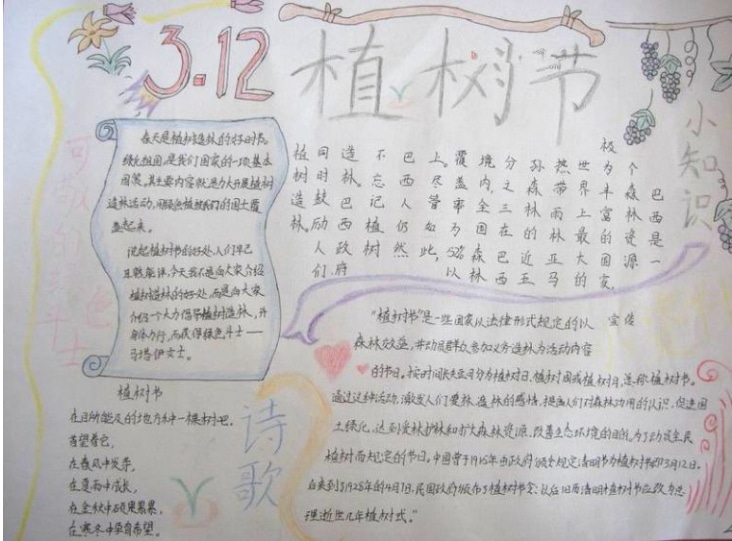 3.12
植树节
小知识
可敬的绿色斗士
春天是植树造林的好时节。
绿化祖国,是我们国家的一项基本
国策,其主要内容就是大力开展植树
造林活动,用绿色植被把我们的国土覆
盖起来。
说起植树节的好处,人们早已
耳熟能详,今天我不是向大家介绍
植树造林的好处,而是向大家
介绍一个大力倡导植树造林,并
身体力行,而获得绿色斗士——
马塔伊女士。
巴西是一
个森林资源
极为丰富的国家,
世界上最大的
热带雨林亚马
孙森林的近五
分之三在巴西
境内,全国森林
覆盖率为52%以
上。尽管如此,
巴西人仍然
不忘记植树
造林。巴西政府
同时鼓励人们
植树造林。
植树节
在目所能及的地方种一棵树吧,
看望着它,
在春风中发芽,
在夏雨中成长,
在金秋中硕果累累,
在寒冬中孕育希望。
诗歌
“植树节”是一些国家以法律形式规定的以 宣传
森林效益,并动员群众参加义务造林为活动内容
的节日。按时间长短可分为植树日、植树周或植树月,总称植树节。
通过这种活动,激发人们爱林、造林的感情,提高人们对森林功用的认识,促进国
土绿化,达到爱林护林和扩大森林资源、改善生态环境的目的。为了动员全民
植树而规定的节日。中国曾于1915年由政府颁令规定清明节为植树节即3月12日。
后来到了1928年的4月7日,民国政府颁布了植树节令:以后旧历清明植树节应改为总
理逝世几年植树式。”